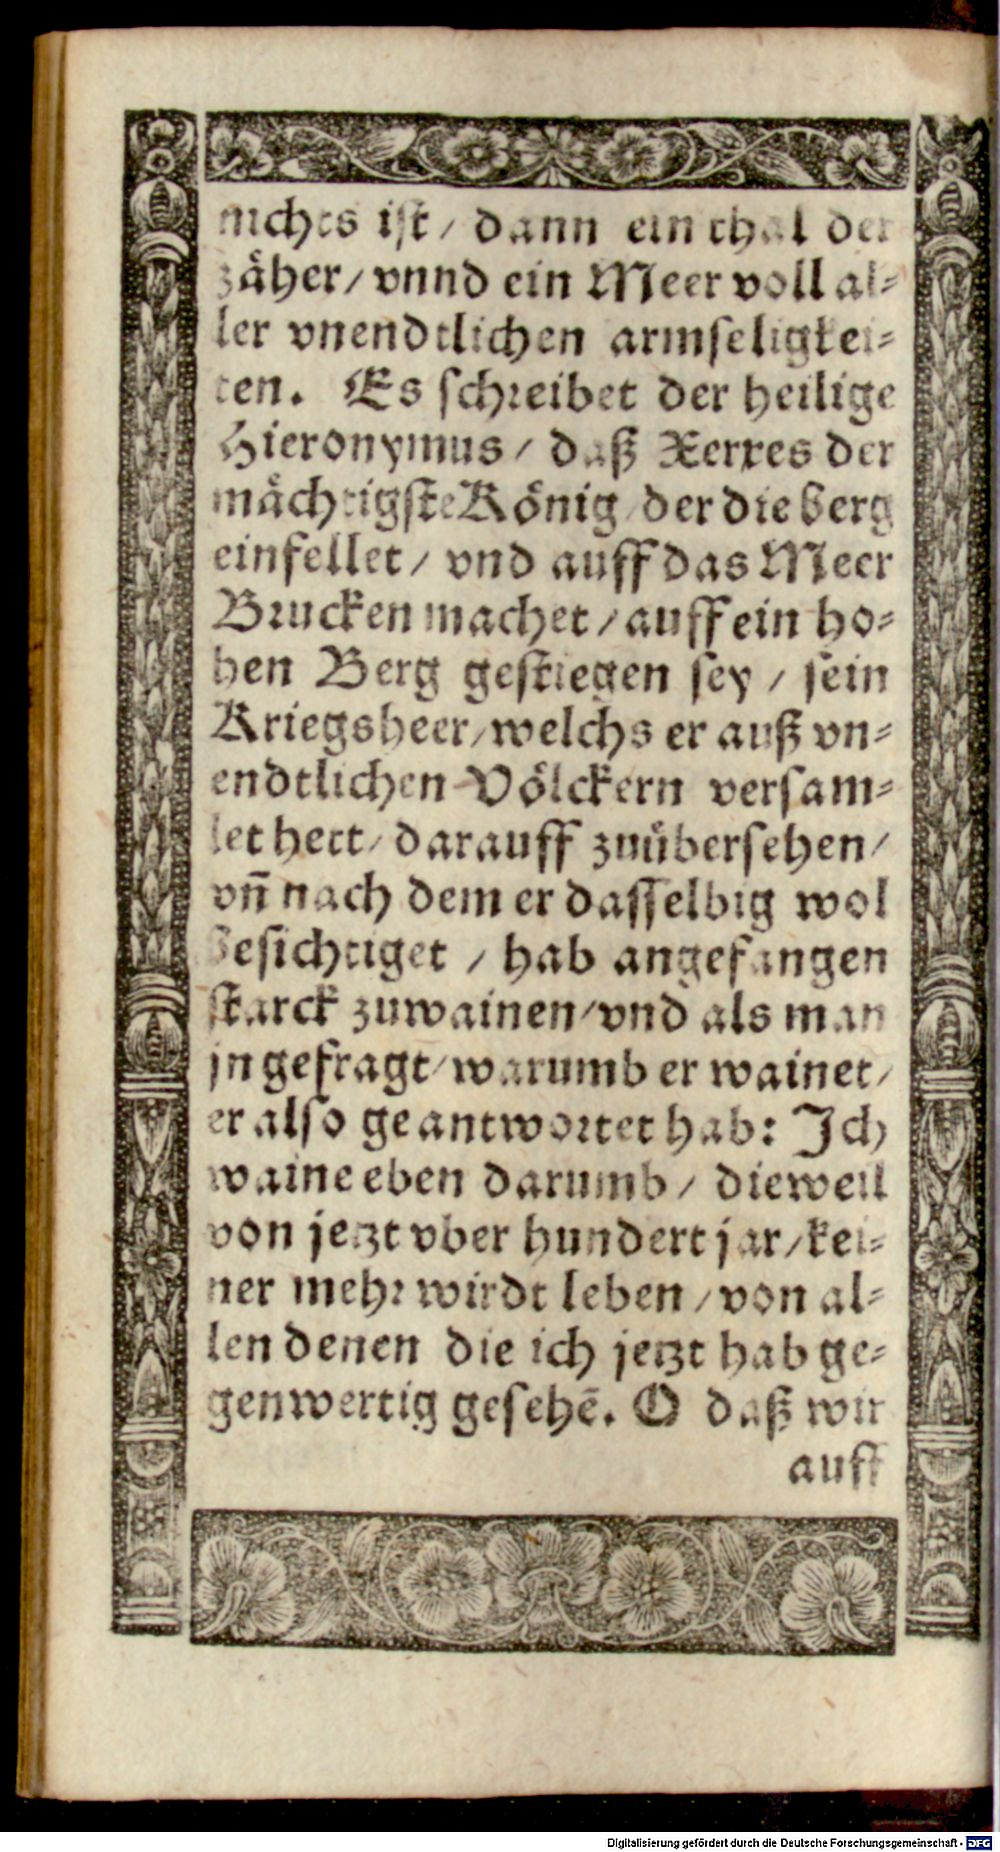 nichts ist / dann ein thal der
zäher / vnnd ein Meer voll al-
ler vnendtlichen armseligkei-
ten. Es schreibet der heilige
Hieronymus / daß Xerxes der
mächtigste König / der die berg
einfellet / vnd auff das Meer
Brucken machet / auff ein ho-
hen Berg gestiegen sey / sein
Kriegsheer / welchs er auß vn-
endtlichen Völckern versam-
let hett / darauff zuübersehen /
vn̄ nach dem er dasselbig wol
besichtiget / hab angefangen
starck zuwainen / vnd als man
jn gefragt / warumb er wainet /
er also geantwortet hab: Ich
waine eben darumb / dieweil
von jetzt vber hundert jar / kei-
ner mehr wirdt leben / von al-
len denen die ich jetzt hab ge-
genwertig gesehē. O daß wir
auff
Digitalisierung gefördert durch die Deutsche Forschungsgemeinschaft - DFG